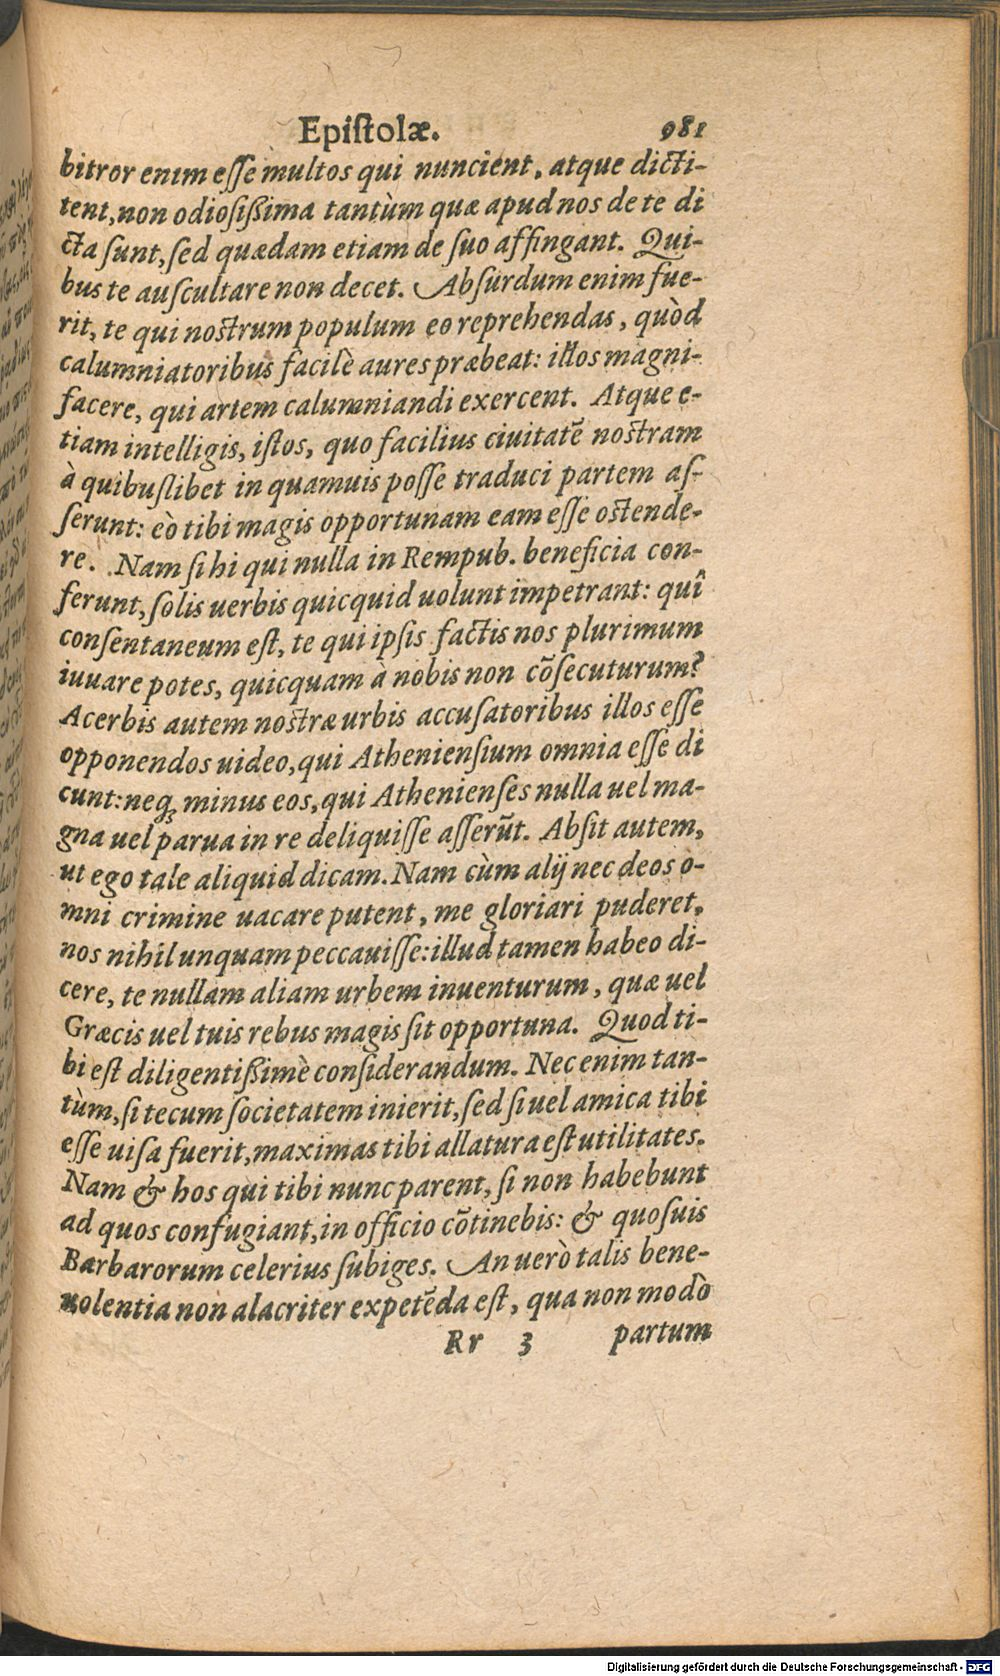 Epiſtolæ. 981
bitror enim eſſe multos qui nuncient, atque dicti-
tent, non odioſißima tantùm quæ apud nos de te di
cta ſunt, ſed quædam etiam de ſuo affingant. Qui-
bus te auſcultare non decet. Abſurdum enim fue-
rit, te qui noſtrum populum eo reprehendas, quòd
calumniatoribus facilè aures præbeat: illos magni-
facere, qui artem calumniandi exercent. Atque e-
tiam intelligis, iſtos, quo facilius ciuitatē noſtram
à quibuſlibet in quamuis poſſe traduci partem aſ-
ſerunt: eò tibi magis opportunam eam eſſe oſtende-
re. Nam ſi hi qui nulla in Rempub. beneficia con-
ferunt, ſolis uerbis quicquid uolunt impetrant: quî
conſentaneum eſt, te qui ipſis factis nos plurimum
iuuare potes, quicquam à nobis non cõſecuturum?
Acerbis autem noſtræ urbis accuſatoribus illos eſſe
opponendos uideo, qui Athenienſium omnia eſſe di
cunt: neq; minus eos, qui Athenienſes nulla uel ma-
gna uel parua in re deliquiſſe aſſerūt. Abſit autem,
ut ego tale aliquid dicam. Nam cùm alij nec deos o-
mni crimine uacare putent, me gloriari puderet,
nos nihil unquam peccauiſſe: illud tamen habeo di-
cere, te nullam aliam urbem inuenturum, quæ uel
Græcis uel tuis rebus magis ſit opportuna. Quod ti-
bi eſt diligentißimè conſiderandum. Nec enim tan-
tùm, ſi tecum ſocietatem inierit, ſed ſi uel amica tibi
eſſe uiſa fuerit, maximas tibi allatura eſt utilitates.
Nam & hos qui tibi nunc parent, ſi non habebunt
ad quos confugiant, in officio cōtinebis: & quoſuis
Barbarorum celerius ſubiges. An uerò talis bene-
uolentia non alacriter expetēda eſt, qua non modò
Rr 3 partum
Digitalisierung gefördert durch die Deutsche Forschungsgemeinschaft - DFG